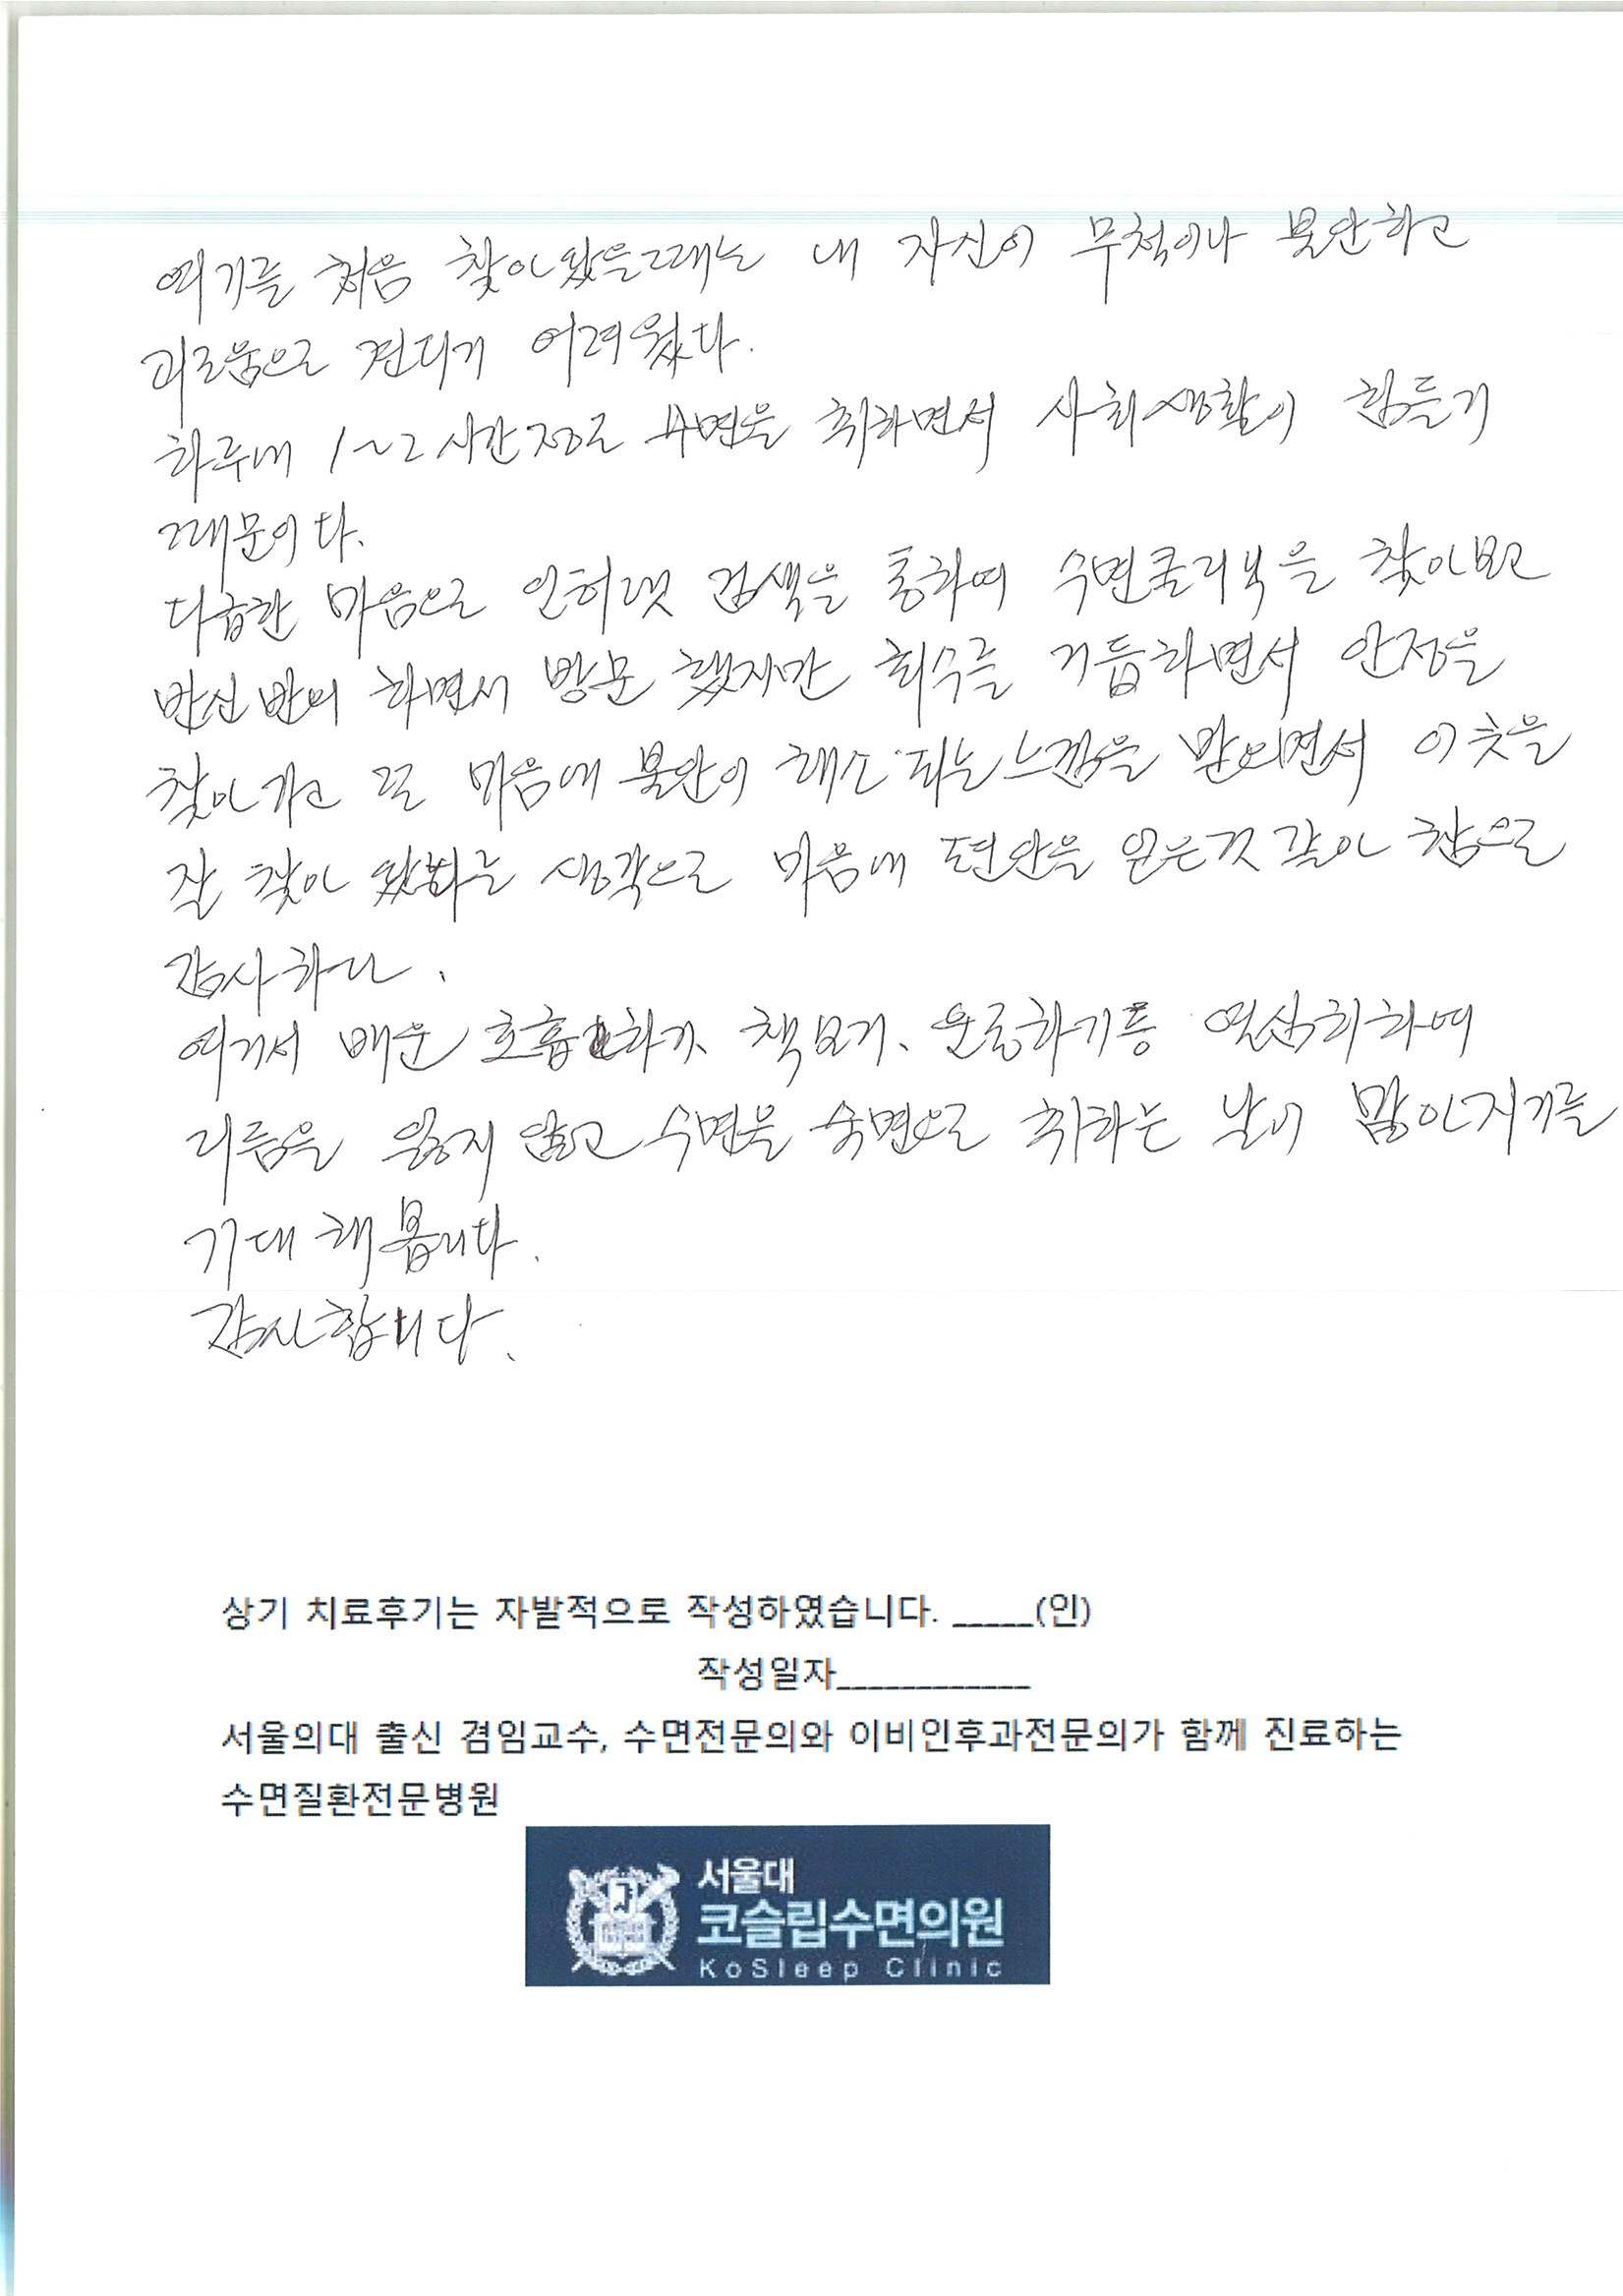 여기를 처음 찾아 왔을때는 내 자신이 무척이나 불안하고
괴로움으로 견디기 어려웠다.
하루에 1~2시간정도 수면을 취하면서 사회생활이 힘들기
때문이다.
다급한 마음으로 인허넷 검색을 통하여 수면클리닉을 찾아보고
반신반의 하면서 방문 했지만 회수를 거듭하면서 안정을
찾아가고 또 마음에 불안이 해소되는 느낌을 받으면서 이곳을
잘 찾아 왔다는 생각으로 마음에 편안을 얻은것 같아 참으로
감사하다.
여기서 배운 호흡하기, 책보기, 운동하기등 열심히하여
리듬을 잃지 않고 수면을 숙면으로 취하는 날이 많아지기를
기대해봅니다.
감사합니다.
상기 치료후기는 자발적으로 작성하였습니다. _____(인)
작성일자____________
서울의대 출신 겸임교수, 수면전문의와 이비인후과전문의가 함께 진료하는
수면질환전문병원
서울대
코슬립수면의원
KoSleep Clinic